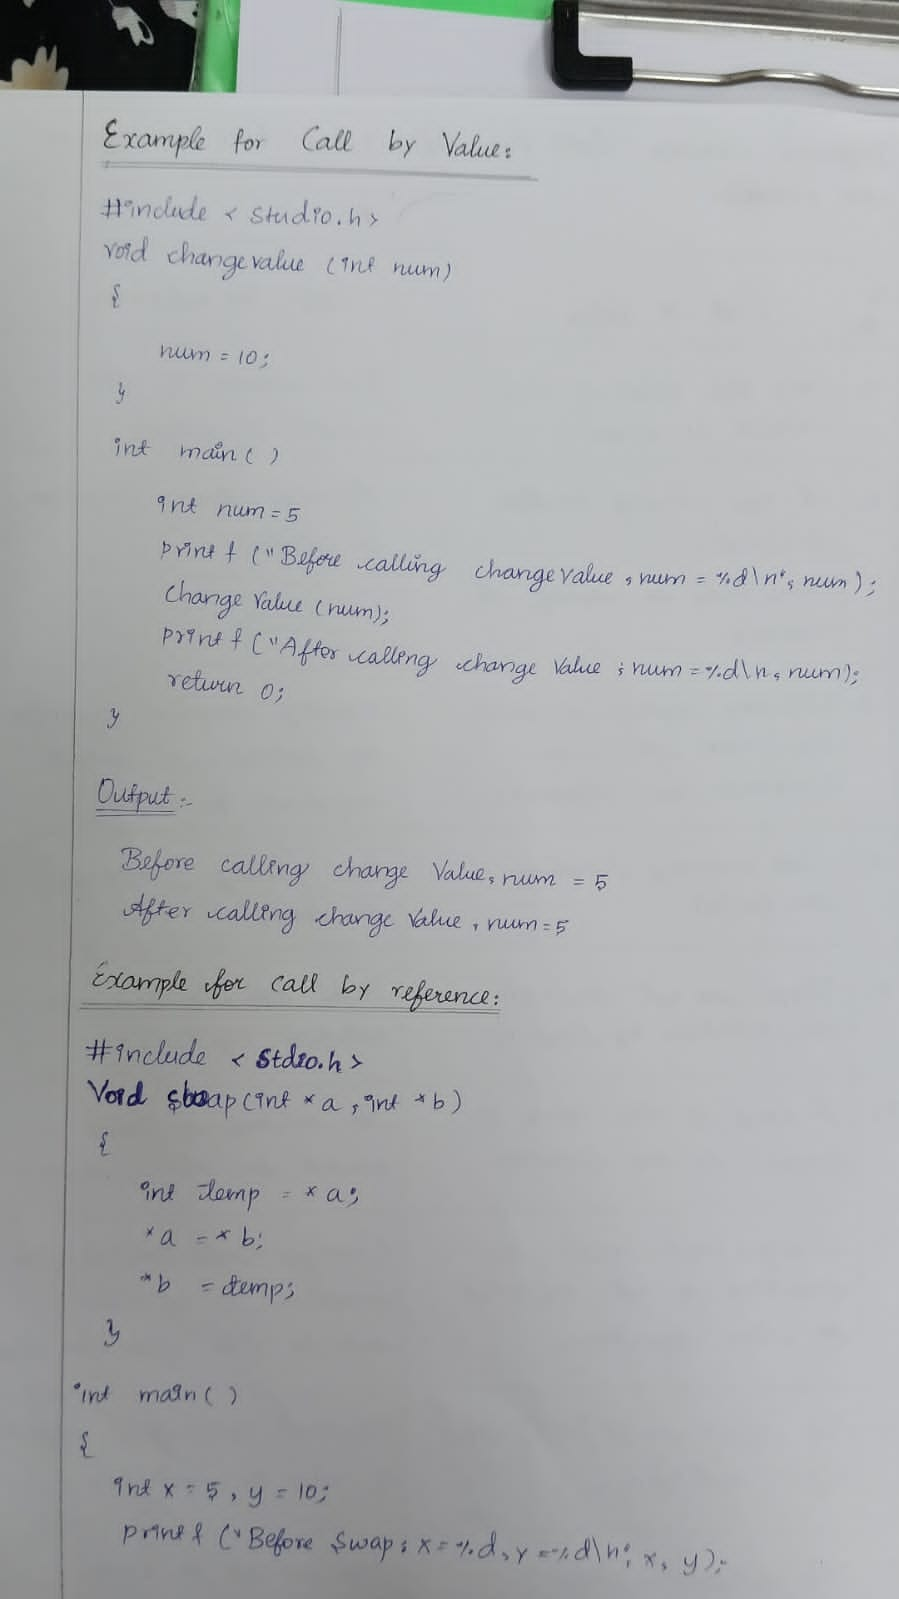 Example for Call by Value:
#include < studio.h>
void changevalue (int num)
{
num = 10;
}
int main( )
int num = 5
printf ("Before calling changevalue, num = %d\n", num);
change Value (num);
printf ("After calling change Value ; num = %d\n, num);
return 0;
}
Output :-
Before calling change Value, num = 5
After calling change Value, num = 5
Example for call by reference:
#include < stdio.h>
Void swap(int *a, int *b)
{
int temp = *a;
*a = *b;
*b = temp;
}
int main( )
{
int x = 5, y = 10;
printf ("Before Swap: x = %d, Y = %d\n", x, y);